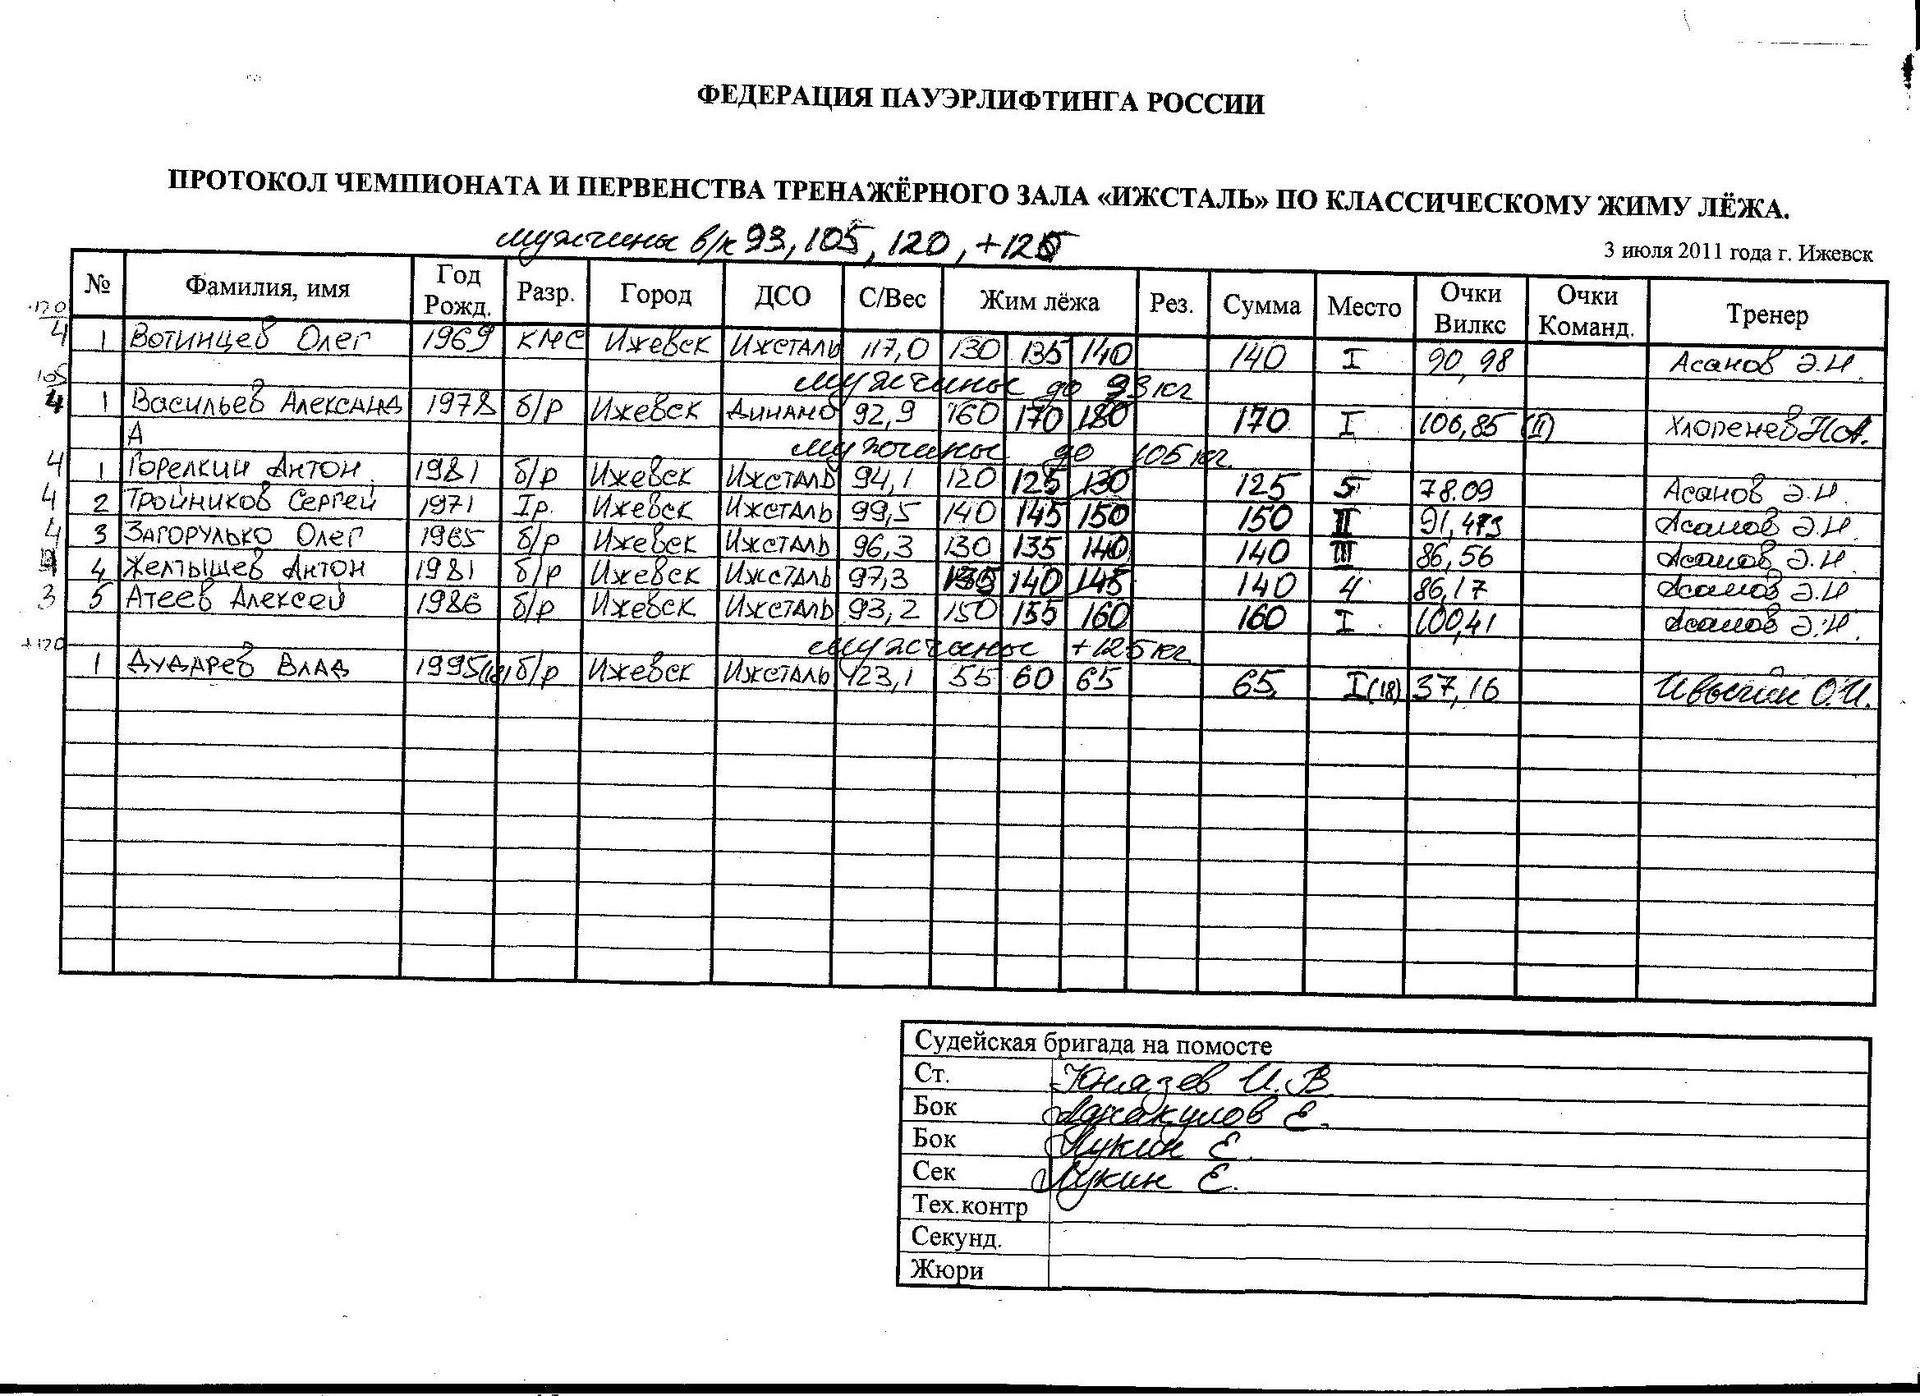 ФЕДЕРАЦИЯ ПАУЭРЛИФТИНГА РОССИИ
ПРОТОКОЛ ЧЕМПИОНАТА И ПЕРВЕНСТВА ТРЕНАЖЁРНОГО ЗАЛА «ИЖСТАЛЬ» ПО КЛАССИЧЕСКОМУ ЖИМУ ЛЁЖА.
мужчины в/к 93, 105, 120, +120
3 июля 2011 года г. Ижевск
№ Фамилия, имя Год Рожд. Разр. Город ДСО С/Вес Жим лёжа Рез. Сумма Место Очки Вилкс Очки Команд. Тренер
-120
4 1 Вотинцев Олег 1969 КМС Ижевск Ижсталь 117,0 130 135 140 140 I 90,98 Асанов Э.Н.
105 мужчины до 93 кг
4 1 Васильев Александ 1978 б/р Ижевск Динамо 92,9 160 170 180 170 I 106,85 (II) Хлопенев Н.А.
А мужчины до 105 кг.
4 1 Горелкин Антон 1981 б/р Ижевск Ижсталь 94,1 120 125 130 125 5 78.09 Асанов Э.Н.
4 2 Тройников Сергей 1971 Iр. Ижевск Ижсталь 99,5 140 145 150 150 II 91,473 Асанов Э.Н.
4 3 Загорулько Олег 1965 б/р Ижевск Ижсталь 96,3 130 135 140 140 III 86,56 Асанов Э.Н.
4 Желтышев Антон 1981 б/р Ижевск Ижсталь 97,3 135 140 145 140 4 86,17 Асанов Э.Н
3 5 Атеев Алексей 1986 б/р Ижевск Ижсталь 93,2 150 155 160 160 I 100,41 Асанов Э.Н.
+120 мужчины +125 кг
1 Дударев Влад 1995(18) б/р Ижевск Ижсталь 123,1 55 60 65 65 I(18) 37,16 О.И.
Судейская бригада на помосте
Ст. Князев И.В
Бок Е.
Бок Лукин Е.
Сек Лукин Е.
Тех.контр
Секунд.
Жюри